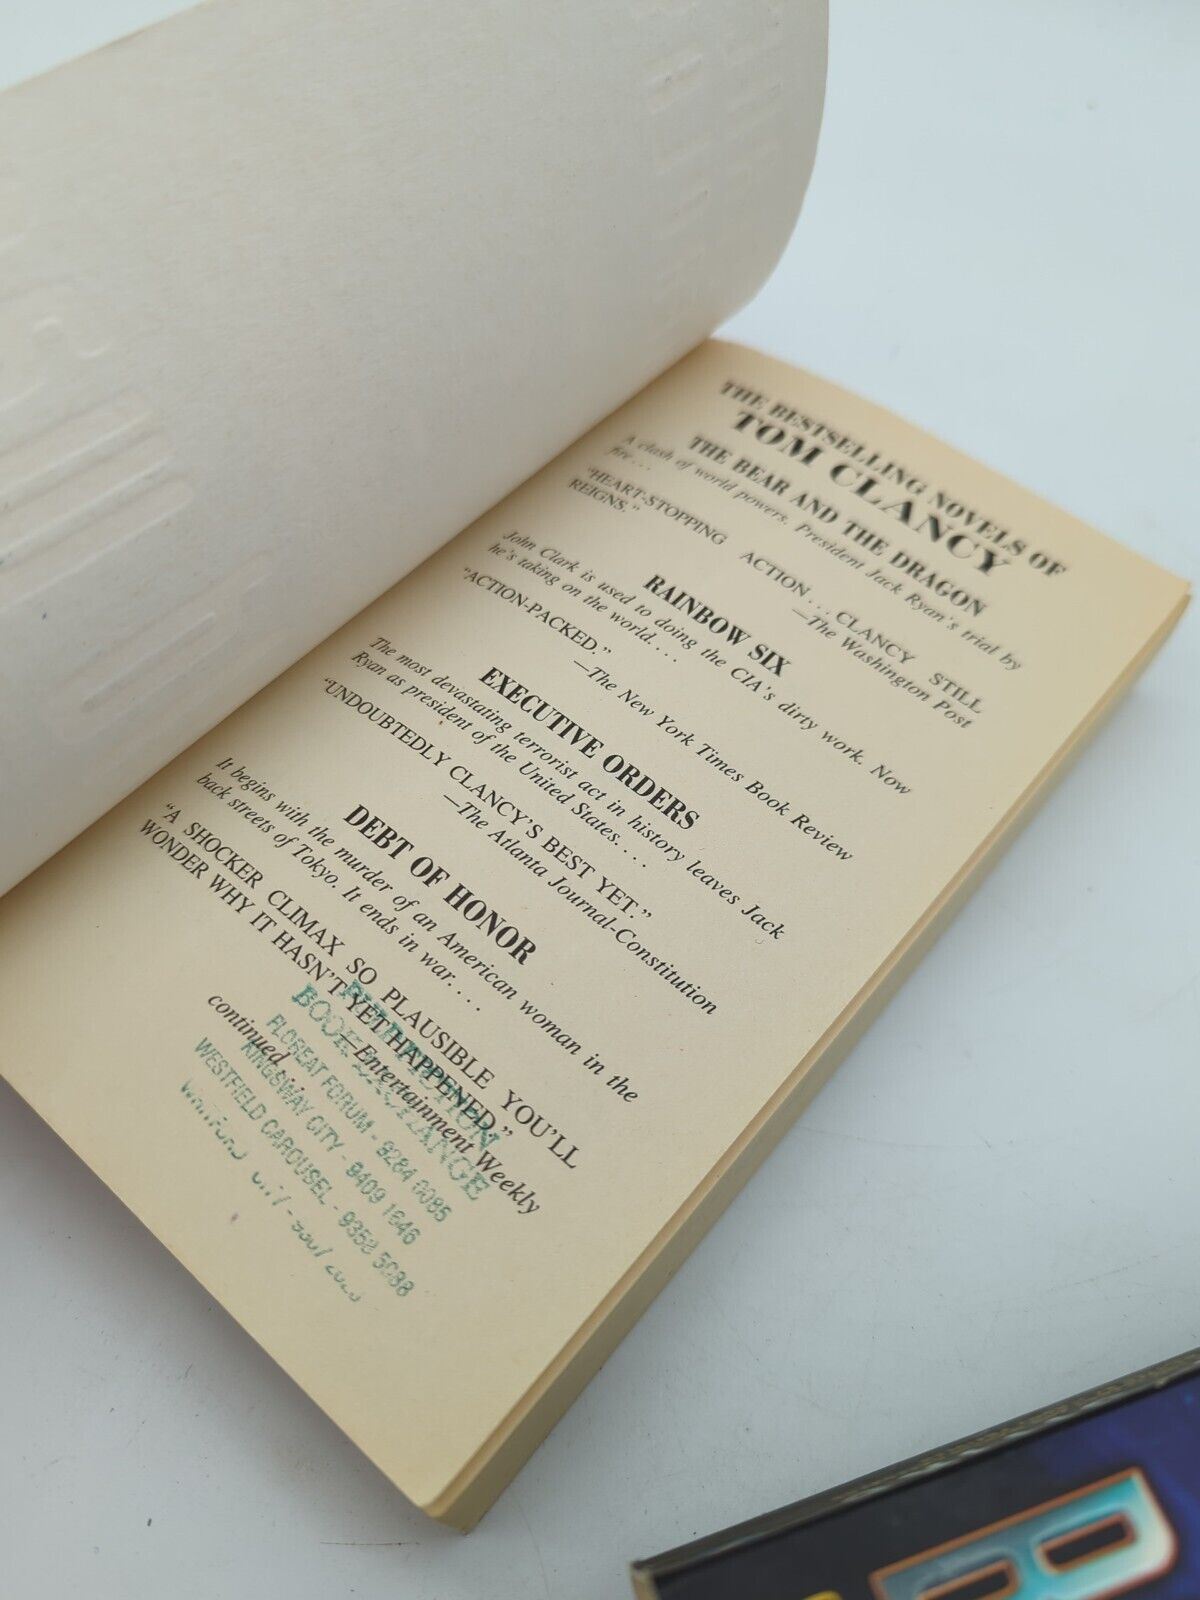 THE BESTSELLING NOVELS OF
TOM CLANCY
THE BEAR AND THE DRAGON
A clash of world powers. President Jack Ryan's trial by
fire . . .
"HEART-STOPPING ACTION . . . CLANCY STILL
REIGNS."
—The Washington Post
RAINBOW SIX
John Clark is used to doing the CIA's dirty work. Now
he's taking on the world. . . .
"ACTION-PACKED."
—The New York Times Book Review
EXECUTIVE ORDERS
The most devastating terrorist act in history leaves Jack
Ryan as president of the United States. . . .
"UNDOUBTEDLY CLANCY'S BEST YET."
—The Atlanta Journal-Constitution
DEBT OF HONOR
It begins with the murder of an American woman in the
back streets of Tokyo. It ends in war. . . .
"A SHOCKER CLIMAX SO PLAUSIBLE YOU'LL
WONDER WHY IT HASN'T YET HAPPENED."
—Entertainment Weekly
continued . . .
BOOK EXCHANGE
FLOREAT FORUM - 9284 0085
KINGSWAY CITY - 9409 1646
WESTFIELD CAROUSEL - 9358 5088